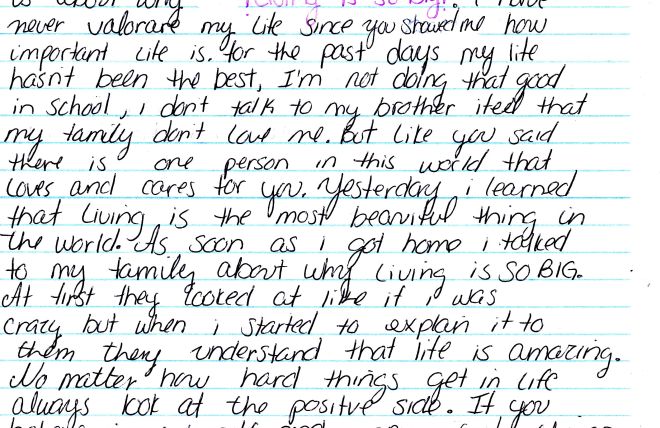 is about why Living is so big! I have
never valorare my life since you showed me how
important life is. for the past days my life
hasn't been the best, I'm not doing that good
in school, i don't talk to my brother i feel that
my family don't love me. But like you said
there is one person in this world that
loves and cares for you. Yesterday i learned
that living is the most beautiful thing in
the world. As soon as i got home i talked
to my family about why living is SO BIG.
At first they looked at like if i was
crazy but when i started to explain it to
them they understand that life is amazing.
No matter how hard things get in life
always look at the positive side. If you